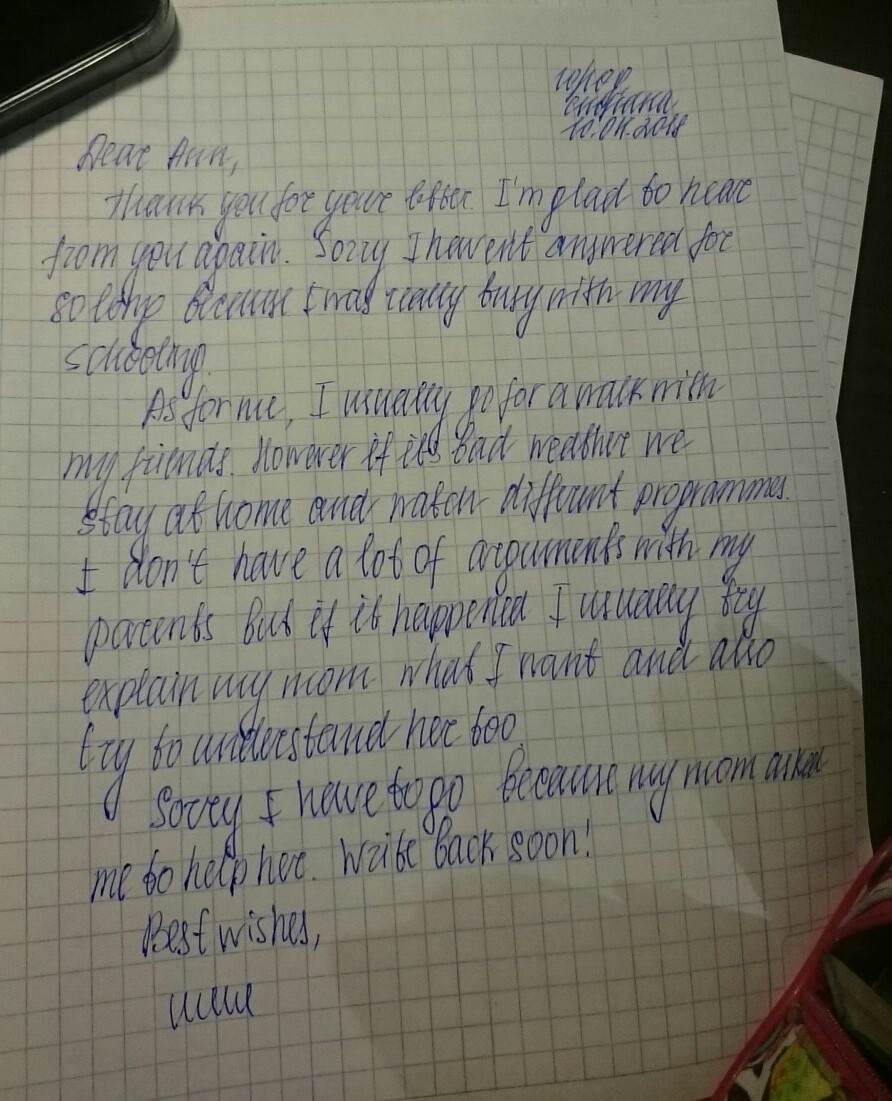 город
страна
10.04.2018
Dear Ann,
Thank you for your letter. I'm glad to hear
from you again. Sorry I haven't answered for
so long because I was really busy with my
schooling.
As for me, I usually go for a walk with
my friends. However if it's bad weather we
stay at home and watch different programmes.
I don't have a lot of arguments with my
parents but if it happened I usually try
explain my mom what I want and also
try to understand her too.
Sorry I have to go because my mom asked
me to help her. Write back soon!
Best wishes,
имя